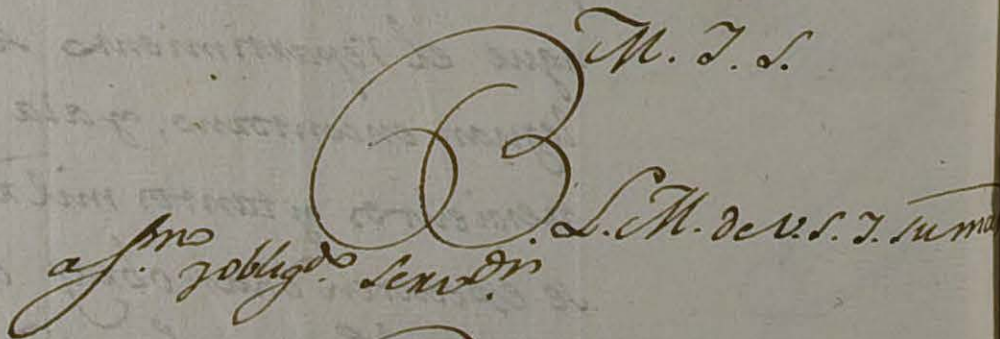 M. I. S.
B. L. M. de V. S. I. su mas
af.mo y oblig.do Serv.dr